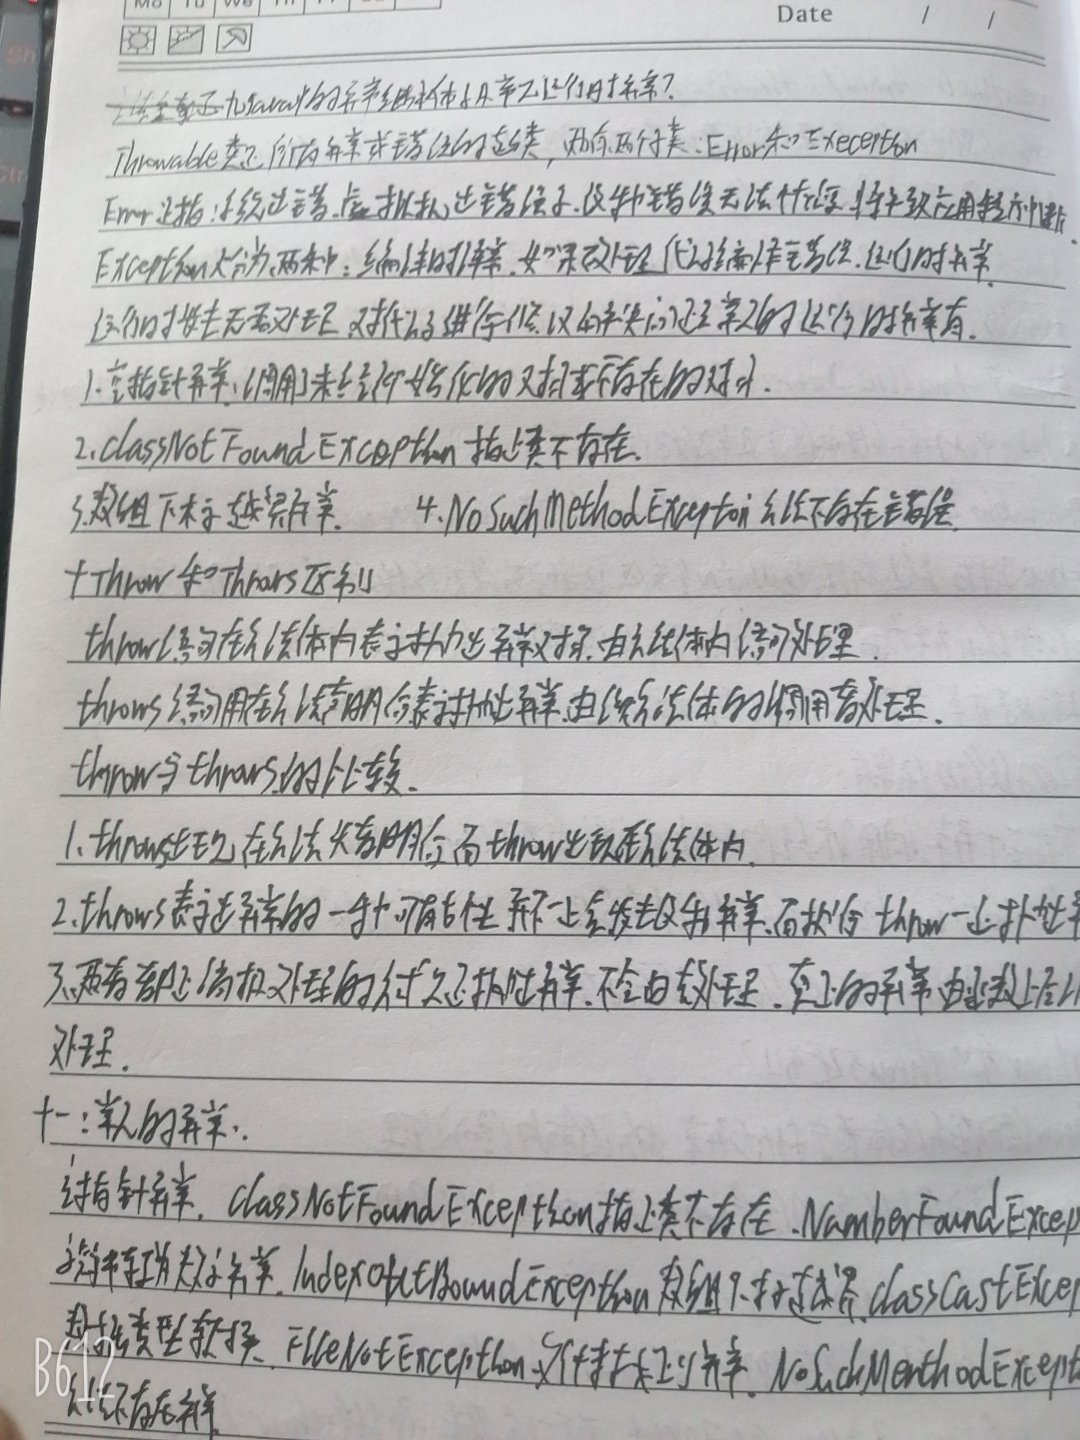 Mo Tu We Th Fr Sa
Date / /
九Java中的异常继承体系 运行时异常？
Throwable类是所有异常或错误的超类，两个子类：Error和Exeception
Error是指：系统出错，应虚拟机出错误了，这种错误无法恢复，将导致应用程序中断。
Exception分为两种：编译时异常，如果不处理 代码编译错误，运行时异常
运行时发生无需处理 对代码进行 常见的运行时异常有
1.空指针异常，调用了未经初始化的对象或不存在的对象.
2.classNotFoundException 指定类不存在.
3.数组下标越界异常. 4.NoSuchMethodExceptoin方法不存在错误
十Throw和Throws区别
throw语句在方法体内表示抛出异常对象，由方法体内语句处理.
throws语句用在方法声明后表示抛出异常，由该方法体的调用者处理.
throw与throws的比较.
1.throws出现在方法头声明后 而throw出现在方法体内.
2.throws表示出异常的一种可能性 并不一定会发生这种异常，而执行throw一定抛出异
3.两者都是消极处理的方式 只是抛出异常，不会由 处理，真正的异常由函数上层
处理.
十一：常见的异常：
空指针异常，classNotFoundException指定类不存在.NumberFoundExcep
字符串转换为数字异常，IndexOutBoundException数组下标越界，classCastExcep
数据类型转换，FileNotException文件未找到异常，NoSuchMenthodExcept
方法不存在异常.
B612